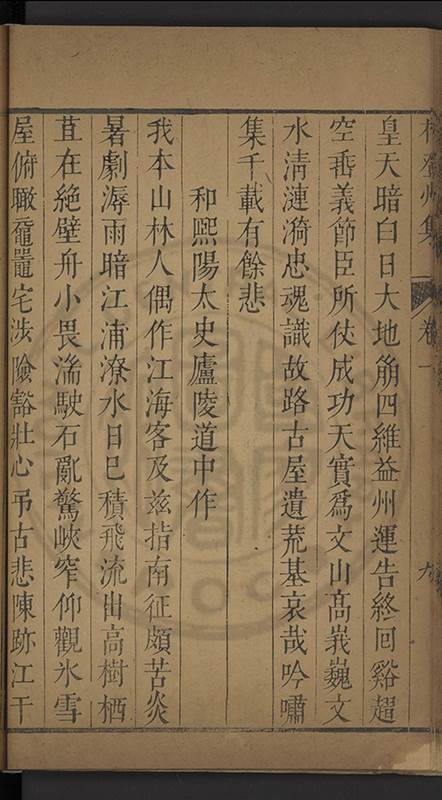 林登州集 卷一 九
皇天暗白日大地崩四維益州運告終回谿趐
空垂義節臣所仗成功天實爲文山高峩巍文
水清漣漪忠魂識故路古屋遺荒基哀哉吟嘯
集千載有餘悲
和熙陽太史廬陵道中作
我本山林人偶作江海客及兹指南征頗苦炎
暑劇溽雨暗江浦潦水日巳積飛流出高樹栖
苴在絶壁舟小畏湍駛石亂驚峽窄仰觀氷雪
屋俯瞰黿鼉宅涉險豁壯心弔古悲陳跡江干